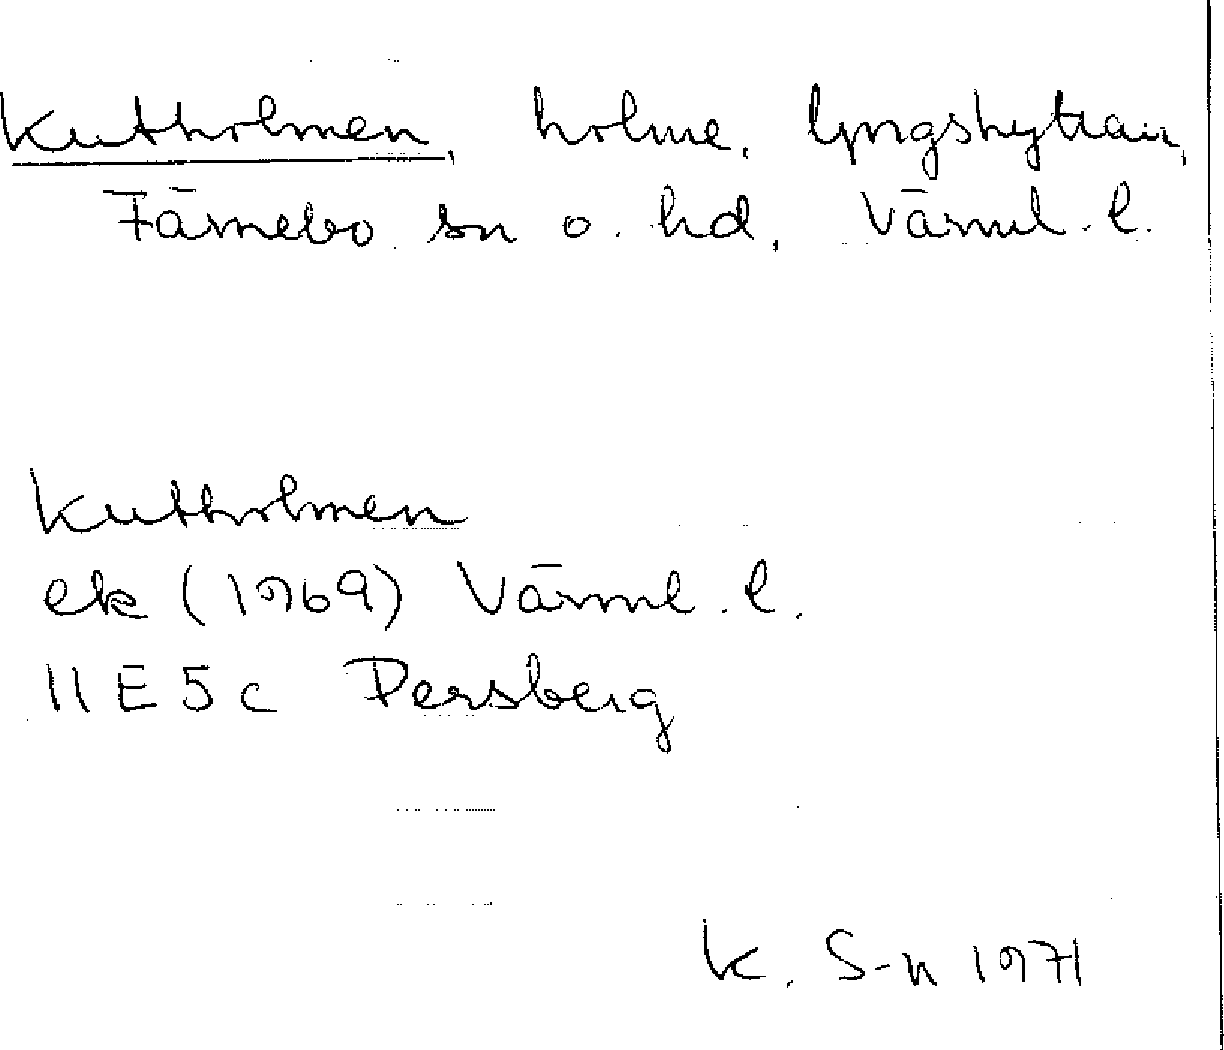 Kutholmen, holme, Yngshyttan,
Färnebo sn o. hd, Värml. l.
Kutholmen
ek (1969) Värml. l.
11E 5c Persberg
K. S-n 1971